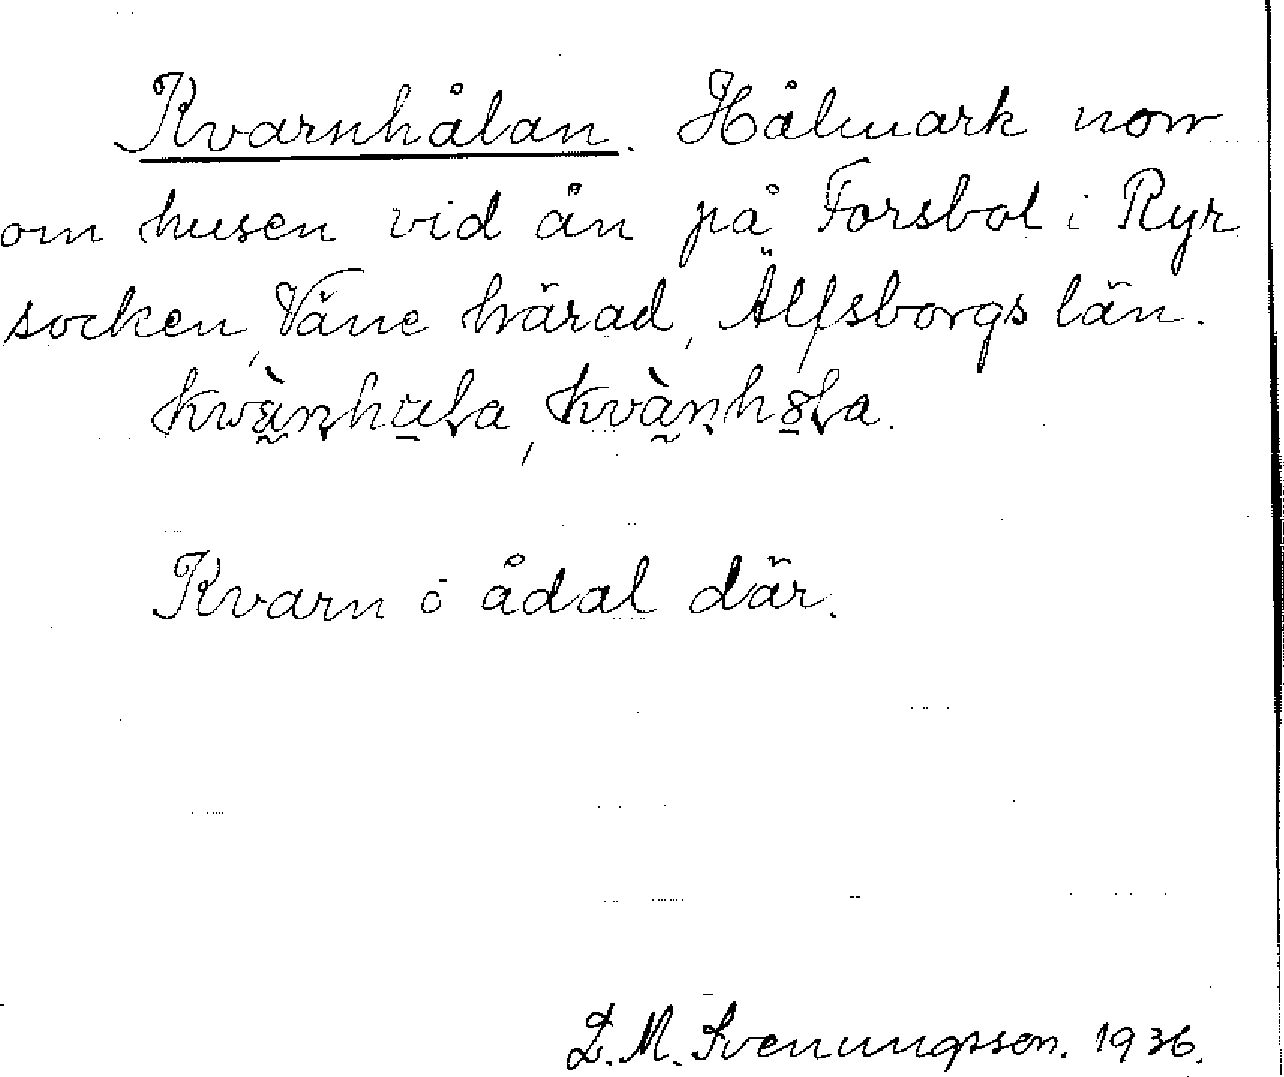 Kvarnhålan. Hålmark norr
om husen vid ån på Forsbol i Ryr
socken, Väne härad, Älfsborgs län.

Kvarn o ådal där.
L. M. Svenungsson. 1936.